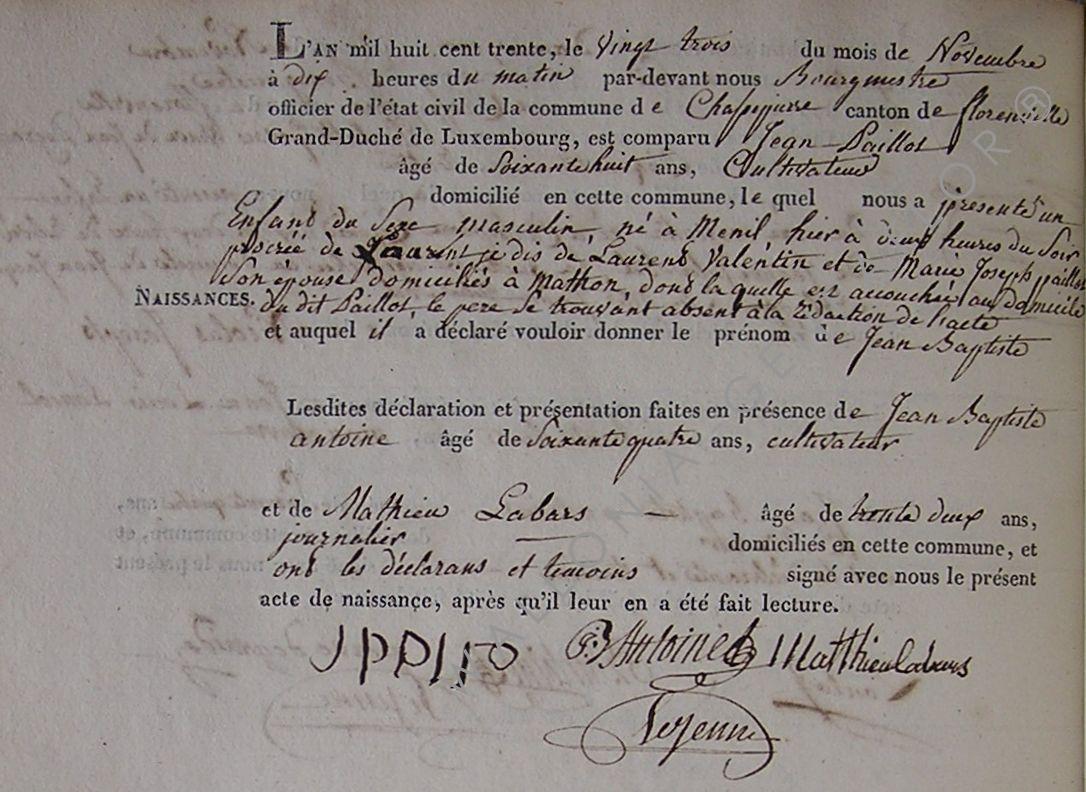 L'AN mil huit cent trente, le Vingt trois du mois de Novembre
à dix heures du matin par-devant nous Bourgmestre
officier de l'état civil de la commune de Chassepierre canton de florenville
Grand-Duché de Luxembourg, est comparu Jean Paillot
âgé de Soixante huit ans, Cultivateur
domicilié en cette commune, le quel nous a présenté un
Enfant du Sexe masculin, né à Menil hier à deux heures du Soir
procrée de Laurent je dis de Laurent Valentin et de Marie Joseph paillot
Son épouse domiciliés à Mathon, dont la quelle est accouchée au domicile
NAISSANCES. du dit Paillot, le pere se trouvant absent à la rédaction de l'acte
et auquel il a déclaré vouloir donner le prénom de Jean Baptiste
Lesdites déclaration et présentation faites en présence de Jean Baptiste
antoine âgé de Soixante quatre ans, cultivateur
et de Mathieu Labars — âgé de trente deux ans,
journalier — domiciliés en cette commune, et
ont les déclarans et temoins signé avec nous le présent
acte de naissance, après qu'il leur en a été fait lecture.
JB Antoine Matthieu labars